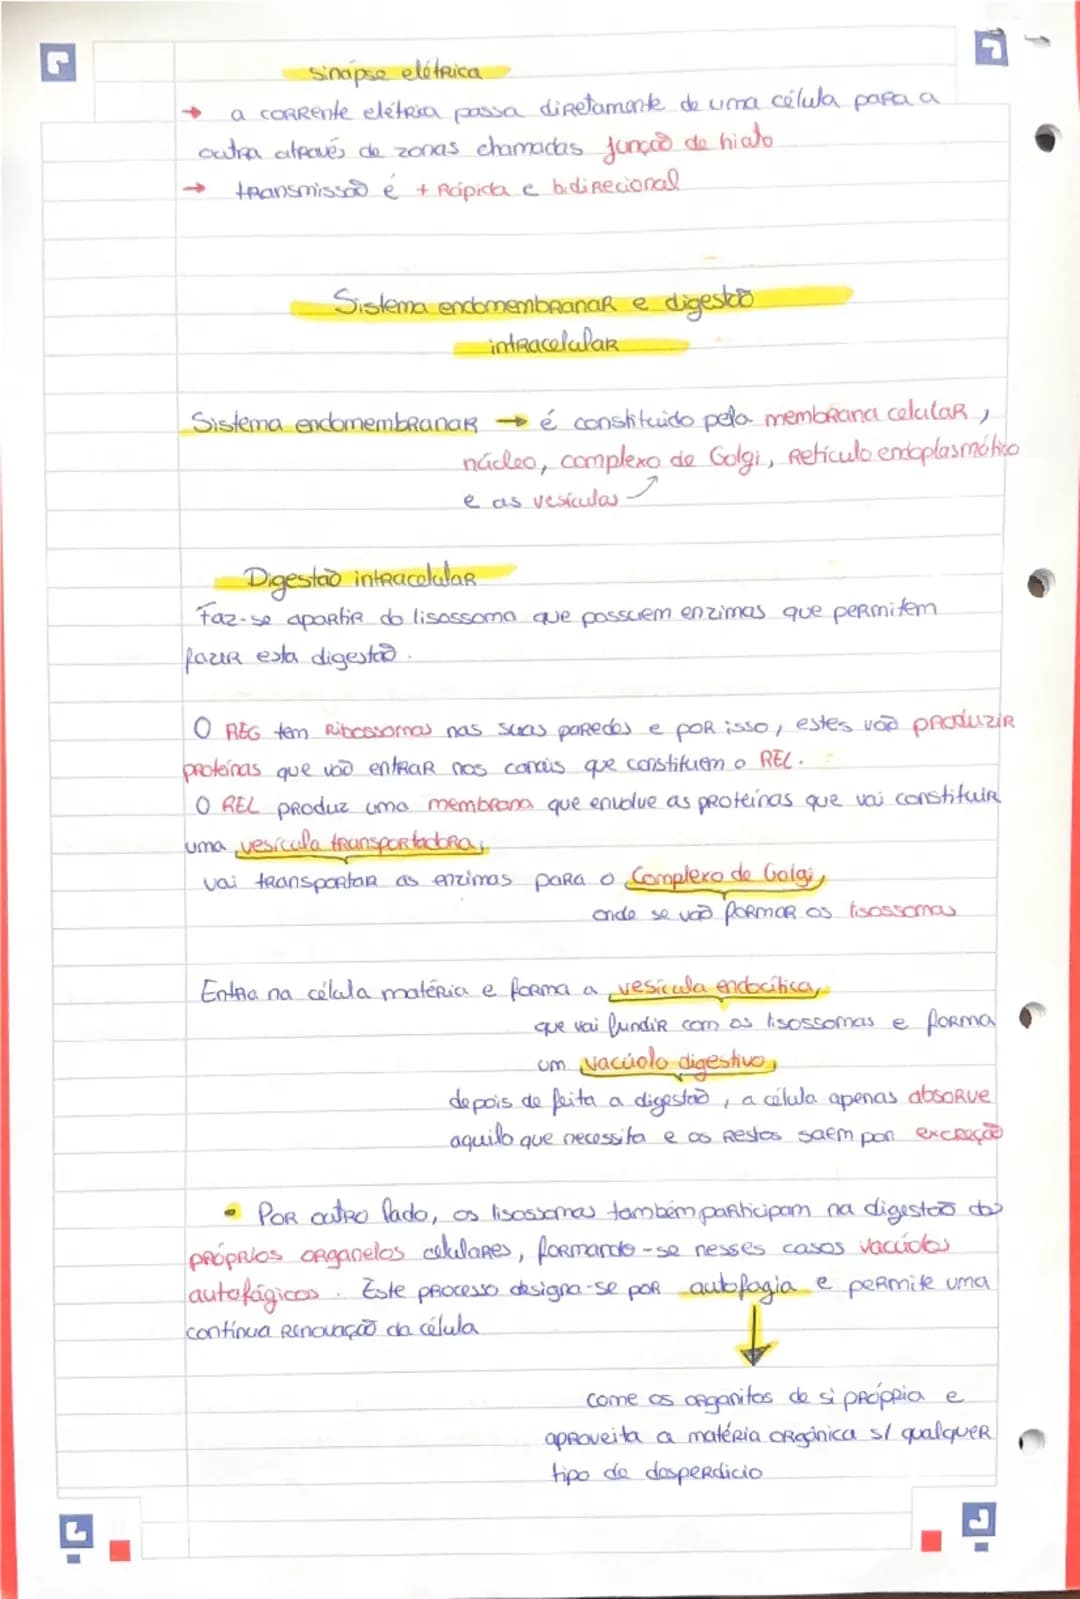 sinápse elétrica
→ a corrente elétrica passa diretamente de uma célula para a
outra através de zonas chamadas junção de hiato
→ transmissão é + Rápida e bidirecional
Sistema endomembranar e digestão
intracelular
Sistema endomembranar → é constituído pela membrana celular,
núcleo, complexo de Golgi, Retículo endoplasmático
e as vesículas
Digestão intracelular
Faz-se apartir do lisossoma que possuem enzimas que permitem
fazer esta digestão.
O REG tem Ribossomas nas suas paredes e por isso, estes vão produzir
proteínas que vão entrar nos canais que constituem o REL.
O REL produz uma membrana que envolve as proteínas que vai constituir
uma vesícula transportadora,
vai transportar as enzimas para o Complexo de Golgi,
onde se vão formar os lisossomas
Entra na célula matéria e forma a vesícula endocítica,
que vai fundir com os lisossomas e forma
um vacúolo digestivo,
depois de feita a digestão, a célula apenas absorve
aquilo que necessita e os Restos saem por excreção
• Por outro lado, os lisossomas também participam na digestão dos
próprios organelos celulares, formando-se nesses casos vacúolos
autofágicos. Este processo designa-se por autofagia e permite uma
contínua Renovação da célula
↓
come os organitos de si própria e
aproveita a matéria orgânica s/ qualquer
tipo de desperdicio